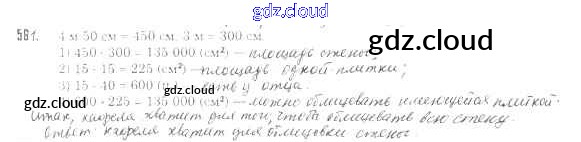 gdz.cloud
561. 4 м 50 см = 450 см. 3 м = 300 см.
1) 450 · 300 = 135 000 (см²) — площадь стены;
2) 15 · 15 = 225 (см²) — площадь одной плитки;
3) 15 · 40 = 600 у отца.
gdz.cloud gdz.cloud
· 225 = 135 000 (см²) — можно облицевать имеющейся плиткой.
Итак, кафеля хватит для того, чтобы облицевать всю стену.
Ответ: кафеля хватит для облицовки стены.
gdz.cloud